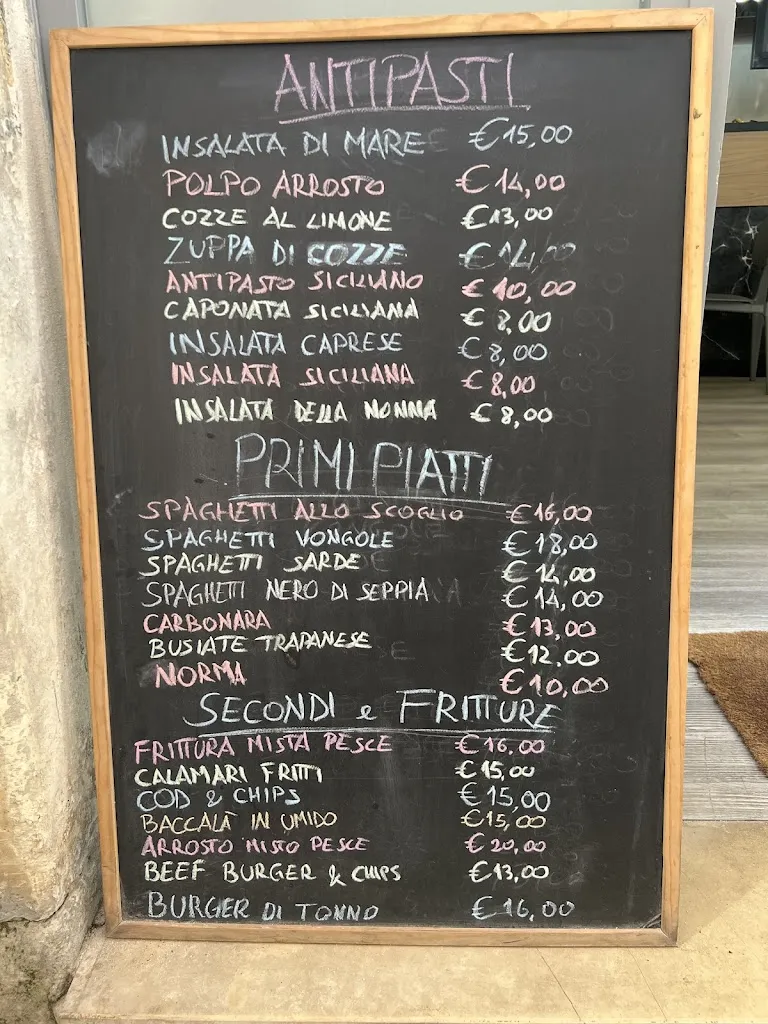 ANTIPASTI
INSALATA DI MARE €15,00
POLPO ARROSTO €14,00
COZZE AL LIMONE €13,00
ZUPPA DI COZZE €14,00
ANTIPASTO SICILIANO €10,00
CAPONATA SICILIANA €8,00
INSALATA CAPRESE €8,00
INSALATA SICILIANA €8,00
INSALATA DELLA NONNA €8,00
PRIMI PIATTI
SPAGHETTI ALLO SCOGLIO €16,00
SPAGHETTI VONGOLE €18,00
SPAGHETTI SARDE €14,00
SPAGHETTI NERO DI SEPPIA €14,00
CARBONARA €13,00
BUSIATE TRAPANESE €12,00
NORMA €10,00
SECONDI e FRITTURE
FRITTURA MISTA PESCE €16,00
CALAMARI FRITTI €15,00
COD & CHIPS €15,00
BACCALÀ IN UMIDO €15,00
ARROSTO MISTO PESCE €20,00
BEEF BURGER & CHIPS €13,00
BURGER DI TONNO €16,00